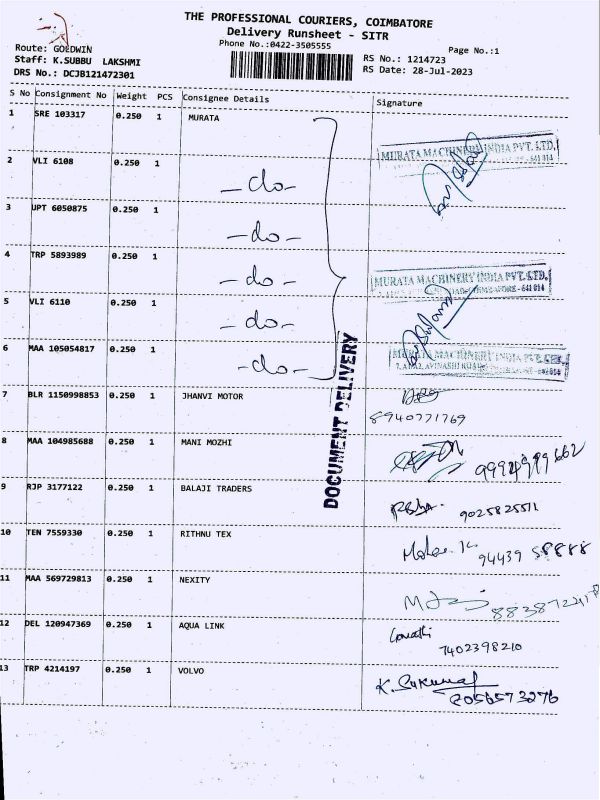 THE PROFESSIONAL COURIERS, COIMBATORE
Delivery Runsheet - SITR
Phone No.:0422-3505555
Page No.:1
Route: GOLDWIN
Staff: K.SUBBU LAKSHMI
RS No.: 1214723
DRS No.: DCJB121472301
RS Date: 28-Jul-2023
S No Consignment No Weight PCS Consignee Details Signature
1 SRE 103317 0.250 1 MURATA
MURATA MACHINERY INDIA PVT. LTD.
641 014
2 VLI 6108 0.250 1 -do-
3 UPT 6050875 0.250 1 -do-
4 TRP 5893989 0.250 1 -do-
MURATA MACHINERY INDIA PVT. LTD.
641 014
5 VLI 6110 0.250 1 -do-
6 MAA 105054817 0.250 1 -do-
MURATA MACHINERY INDIA PVT. LTD.
AVINASHI ROAD
DOCUMENT DELIVERY
7 BLR 1150998853 0.250 1 JHANVI MOTOR
8940771769
8 MAA 104985688 0.250 1 MANI MOZHI
9994999662
9 RJP 3177122 0.250 1 BALAJI TRADERS
9025825511
10 TEN 7559330 0.250 1 RITHNU TEX
94439 58888
11 MAA 569729813 0.250 1 NEXITY
12 DEL 120947369 0.250 1 AQUA LINK
Gomathi
7402398210
13 TRP 4214197 0.250 1 VOLVO
K. Sukumar
8056573276